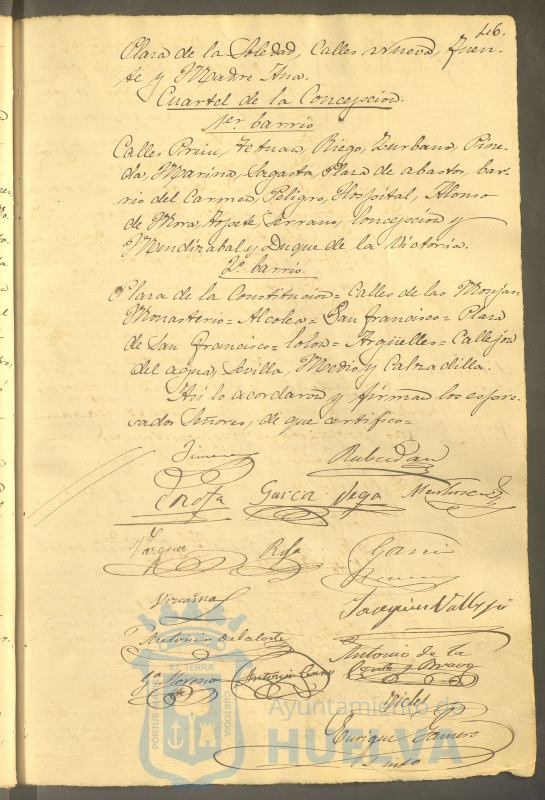 46.
Plaza de la Soledad, Calles Nueva, Fuen-
te y Madre Ana.
Cuartel de la Concepcion.
1er. barrio
Calles Prim, Tetuan, Riego, Zurbano, Pine-
da, Marina, Sagasta, Plaza de abastos, bar-
rio del Carmen, Peligro, Hospital, Alonso
de Mora, Topete, Serrano, Concepcion y
Mendizabal y Duque de la Victoria.
2º barrio.
Plaza de la Constitucion= Calles de las Monjas
Monasterio= Alcolea= San Francisco= Plaza
de San Francisco= Colon= Argüelles= Callejon
del agua, Sevilla, Medio y Calzadilla.
Asi lo acordaron y firman los espre-
sados Señores, de que certifico=
Jimenez
Garcia Vega
Vazquez
Vizcaino
Joaquin Vallejo
Antonio de la
Moreno Antonio
Enrique
PORTUS EL TERRA CUSTODIA
Ayuntamiento de
HUELVA